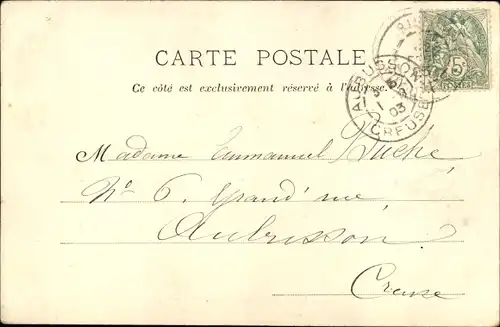 CARTE POSTALE
Ce côté est exclusivement réservé à l'adresse.
AUBUSSON
5
03
CREUSE
Madame Emmanuel
No 6, Grand' rue,
Aubusson.
Creuse